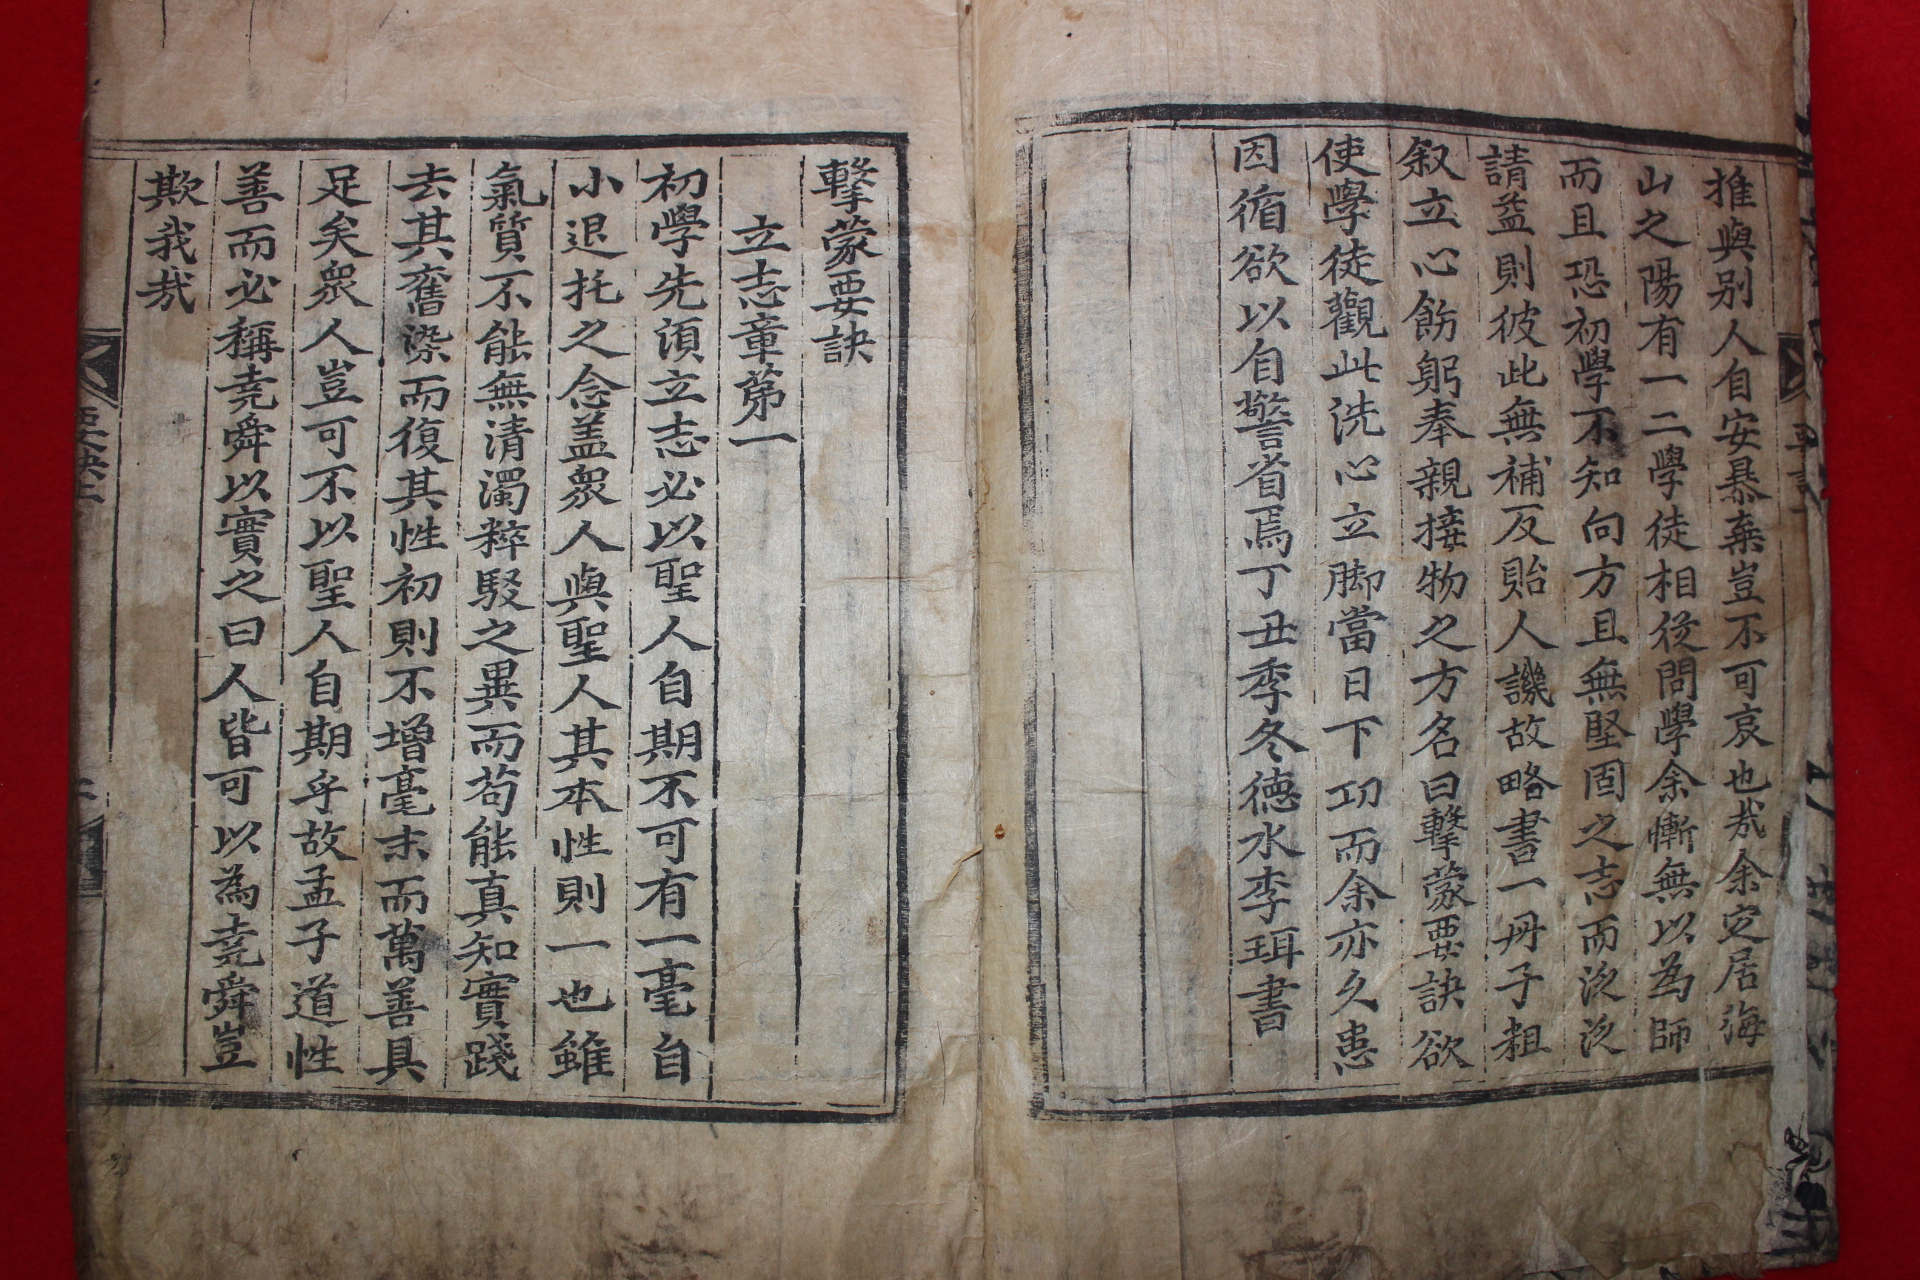 推與別人自安暴棄豈不可哀也㦲余定居海
山之陽有一二學徒相從問學余慚無以為師
而且恐初學不知向方且無堅固之志而泛泛
請益則彼此無補反貽人譏故略書一冊子粗
叙立心飭躬奉親接物之方名曰擊蒙要訣欲
使學徒觀此洗心立脚當日下功而余亦久患
因循欲以自警省焉丁丑季冬德水李珥書
擊蒙要訣
立志章苐一
初學先湏立志必以聖人自期不可有一毫自
小退托之念盖衆人與聖人其本性則一也雖
氣質不能無清濁粹駁之異而苟能真知實踐
去其舊染而復其性初則不增毫末而萬善具
足矣衆人豈可不以聖人自期乎故孟子道性
善而必稱堯舜以實之曰人皆可以為堯舜豈
欺我㦲
要訣